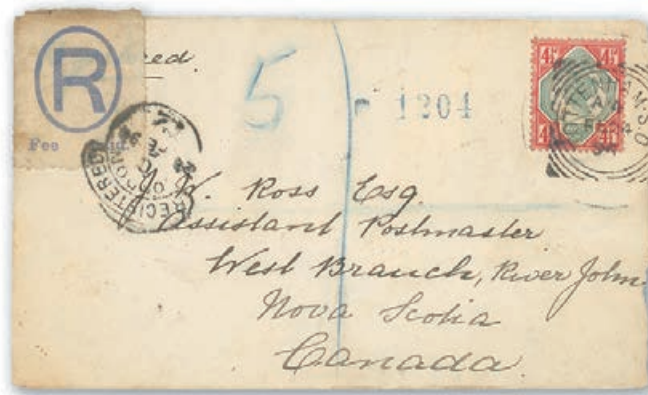 R
Fee
5
1204
4½ 4½
REGISTERED
W. Ross Esq.
Assistant Postmaster
West Branch, River John
Nova Scotia
Canada.